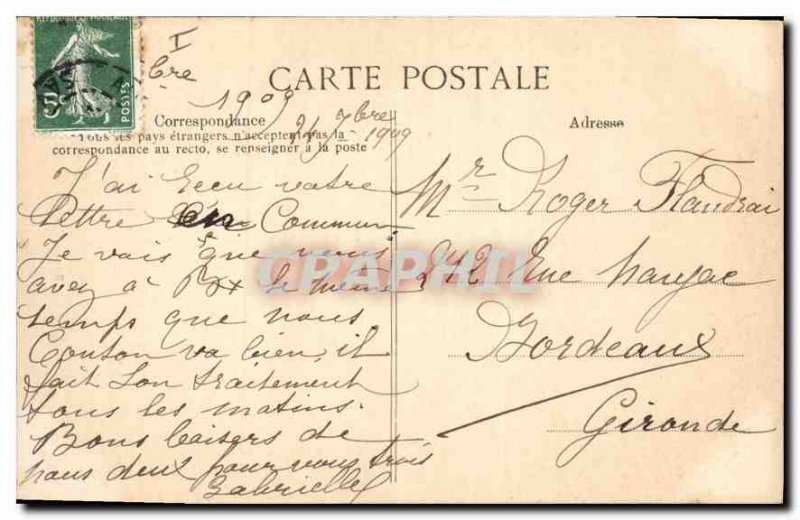 CARTE POSTALE
I
bre
1909
Correspondance
21 7bre 1909
Tous les pays étrangers n'acceptent pas la
correspondance au recto, se renseigner à la poste
J'ai Recu votre
lettre en Commun
Je vois que vous
avez à Bx le meme
temps que nous
Couton va bien, il
fait son traitement
tous les matins.
Bons baisers de
nous deux pour vous trois
Gabrielle
Adresse
Mr Roger Flandrai
242 Rue Naujac
Bordeaux
Gironde
CPAPHIL
POSTES
5